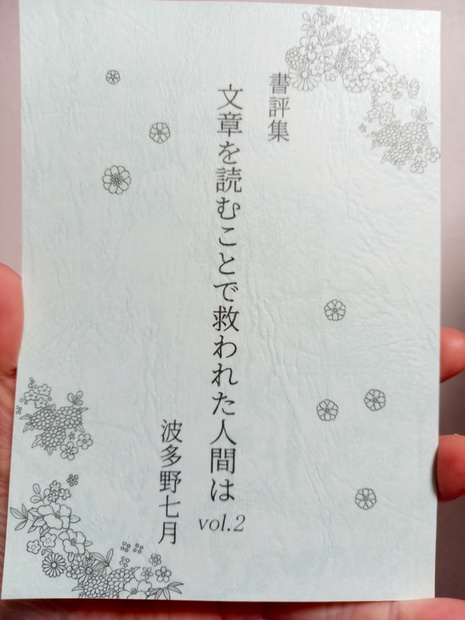 書評集
文章を読むことで救われた人間は
vol.2
波多野七月